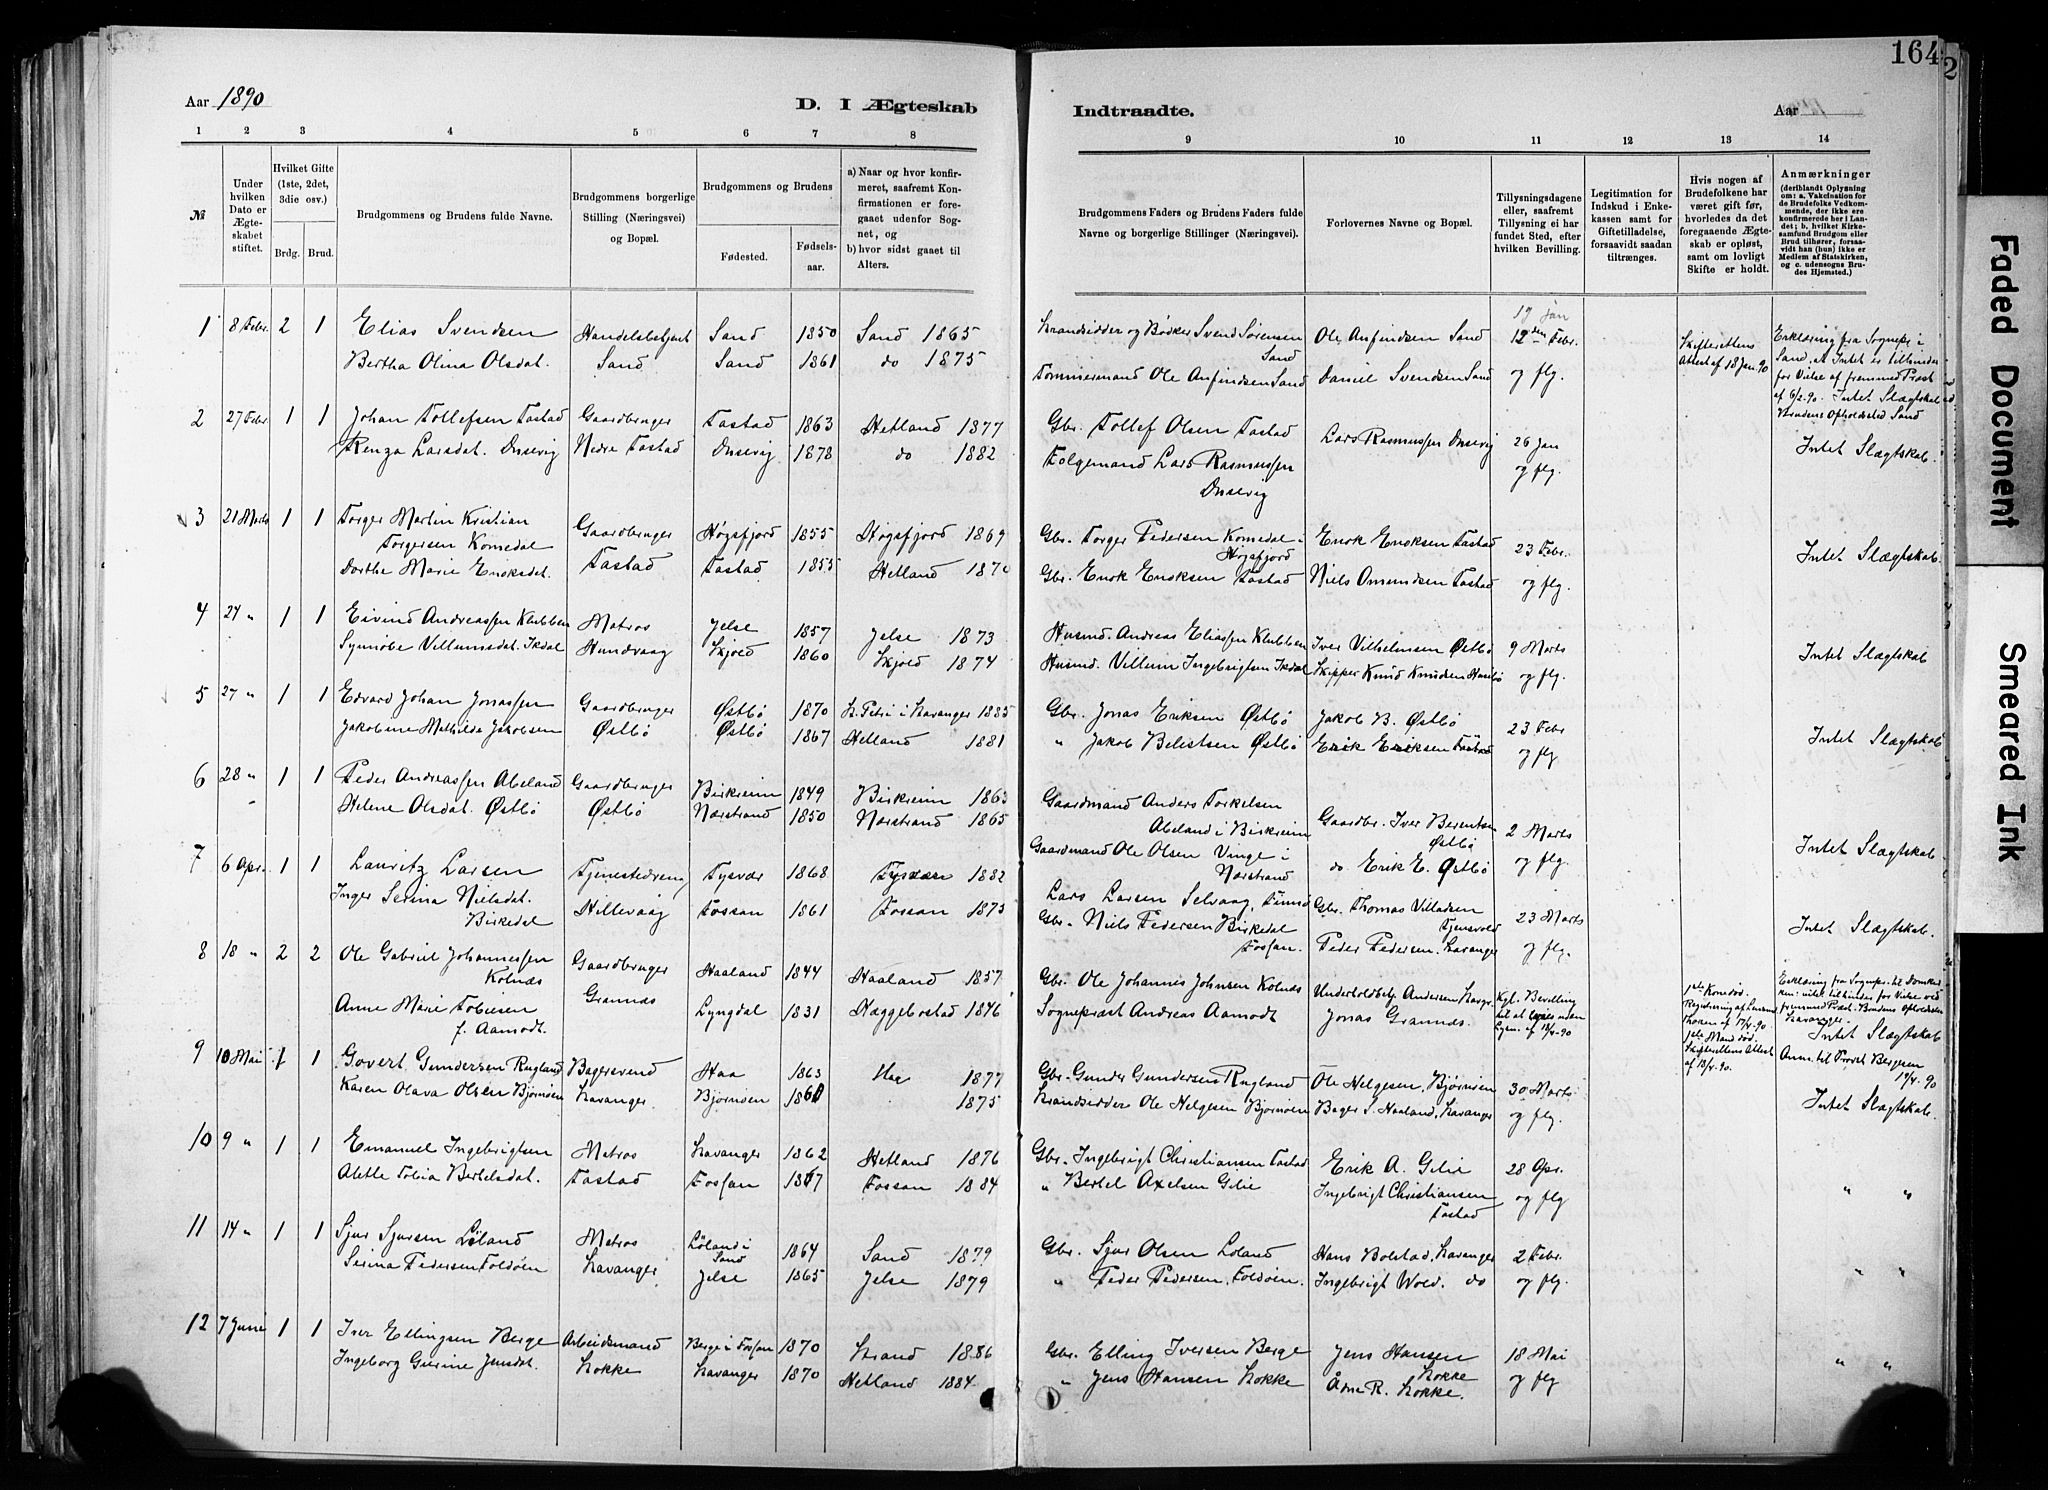 164
2
Aar 1890
D. I Ægteskab
Indtraadte.
Aar
1 2 3 4 5 6 7 8 9 10 11 12 13 14
№
Under hvilken Dato er Ægteskabet stiftet.
Hvilket Gifte (1ste, 2det, 3die osv.)
Brdg. Brud.
Brudgommens og Brudens fulde Navne.
Brudgommens borgerlige Stilling (Næringsvei) og Bopæl.
Brudgommens og Brudens
Fødested.
Fødselsaar.
a) Naar og hvor konfirmeret, saafremt Konfirmationen er foregaaet udenfor Sognet, og
b) hvor sidst gaaet til Alters.
Brudgommens Faders og Brudens Faders fulde Navne og borgerlige Stillinger (Næringsvei).
Forlovernes Navne og Bopæl.
Tillysningsdagene eller, saafremt Tillysning ei har fundet Sted, efter hvilken Bevilling.
Legitimation for Indskud i Enkekassen samt for Giftetilladelse, forsaavidt saadan tiltrænges.
Hvis nogen af Brudefolkene har været gift før, hvorledes da det foregaaende Ægteskab er opløst, samt om lovligt Skifte er holdt.
Anmærkninger
(deriblandt Oplysning om: a. Vakcination for de Brudefolks Vedkommende, der ikke ere konfirmerede her i Landet; b. hvilket Kirkesamfund Brudgom eller Brud tilhører, forsaavidt han (hun) ikke er Medlem af Statskirken, og c. udensogns Brudes Hjemsted.)
1 8 Febr. 2 1 Elias Svendsen Handelsbetjent Sand 1850 Sand 1865 Strandsidder og Bødker Svend Sørensen Sand Ole Anfindsen Sand 19 Jan 12 Febr. Skifterettens Attest af 18 Jan. 90 Erklæring fra Sognepr. i Sand, at Intet er tilhinder for Vielse af fremmed Præst af 6/2-90. Intet Slægtskab.
Bertha Olina Olsdat. Sand Sand 1861 do 1875 Tømmermand Ole Anfindsen Sand Daniel Svendsen Sand og flg. Brudens Opholdssted Sand
2 27 Febr. 1 1 Johan Tollefsen Tastad Gaardbruger Tastad 1863 Hetland 1877 Gbr. Tollef Olsen Tastad Lars Rasmussen Dusevig 26 Jan Intet Slægtskab.
Renza Larsdat. Dusevig Nedre Tastad Dusevig 1878 do 1882 Folgemand Lars Rasmussen Dusevig og flg.
3 21 Marts 1 1 Torger Martin Kristian Torgersen Komedal Gaardbruger Høgsfjord 1855 Høgsfjord 1869 Gbr. Torger Pedersen Komedal i Høgsfjord Enok Enoksen Tastad 23 Febr. Intet Slægtskab.
Dorthe Marie Enoksdat. Tastad Tastad 1855 Hetland 1870 Gbr. Enok Enoksen Tastad Niels Omundsen Tastad og flg.
4 27 " 1 1 Eivind Andreassen Klubben Matros Jelse 1857 Jelse 1873 Husmd. Andreas Eliassen Klubben Iver Vilhelmsen Østbø 9 Marts Intet Slægtskab
Synnøve Villumsdat. Ikdal Hundvaag Skjold 1860 Skjold 1874 Husmd. Villum Ingebrigtsen Ikdal Skipper Knud Knudsen Husebø og flg.
5 27 " 1 1 Edvard Johan Jonassen Gaardbruger Østbø 1870 St. Petri i Stavanger 1885 Gbr. Jonas Eriksen Østbø Jakob B. Østbø 23 Febr Intet Slægtskab
Jakobine Mathilda Jakobsen Østbø Østbø 1867 Hetland 1881 " Jakob Belestsen Østbø Erik Eriksen Tastad og flg
6 28 " 1 1 Peder Andreassen Abeland Gaardbruger Birkreim 1849 Birkreim 1863 Gaardmand Anders Torkelsen Abeland i Birkreim Gaardbr. Iver Berentsen Østbø 2 Marts Intet Slægtskab
Helene Olsdat. Østbø Østbø Nærstrand 1850 Nærstrand 1865 Gaardmand Ole Olsen Vinge i Nærstrand do Erik E. Østbø og flg.
7 6 Apr. 1 1 Lauritz Larsen Tjenestedreng Tysvær 1868 Tysvær 1882 Lars Larsen Selvaag, Gbr. Thomas Villadsen Tjensvold 23 Marts Intet Slægtskab.
Inger Serina Nielsdat. Birkedal Hillevaag Fossan 1861 Fossan 1875 Gbr. Niels Pedersen Birkedal Fossan. Peder Pedersen, Stavanger og flg.
8 18 " 2 2 Ole Gabriel Johannessen Kolnæs Gaardbruger Haaland 1844 Haaland 1857 Gbr. Ole Johannes Johnsen Kolnæs Underholdbetj. Andersen Stavgr Kgl. Bevilling til at vies uden Lysn. af 18/4-90 1ste Kone død. Mand død. Skifterettens Attest af 18/4-90. Erklæring fra Sognepr. til Domkirken: intet tilhinder for Vielse ved fremmed Præst. Brudens Opholdssted Stavanger. Intet Slægtskab
Anne Marie Tobiesen f. Aamodt. Grannæs Lyngdal 1831 Hæggebostad 1846 Sognepræst Andreas Aamodt Jonas Grannæs.
9 10 Mai 1 1 Govert Gundersen Rugland Bagersvend Haa 1863 Haa 1877 Gbr. Gunder Gundersen Rugland Ole Helgesen, Bjørnøen 30 Marts Anm. til Provst Bergesen 19/4-90 Intet Slægtskab.
Karen Olava Olsen Bjørnøen Stavanger. Bjørnøen 1861 1875 Strandsidder Ole Helgesen Bjørnøen Bager S. Haaland, Stavanger og flg.
10 9 " 1 1 Emanuel Ingebrigtsen Matros Stavanger 1862 Hetland 1876 Gbr. Ingebrigt Christiansen Tastad Erik A. Gilie 28 Apr. " "
Alette Tobia Bertelsdat. Tastad Fossan 1867 Fossan 1884 " Bertel Axelsen Gilie Ingebrigt Christiansen Tastad og flg
11 14 " 1 1 Sjur Sjursen Løland Matros Løland i Sand 1864 Sand 1879 Gbr. Sjur Olsen Løland Hans Bolstad, Stavanger 2 Febr. " "
Serina Pedersen Foldøen Stavanger Jelse 1865 Jelse 1879 " Peder Pedersen, Foldøen. Ingebrigt Wold. do og flg.
12 7 Juni 1 1 Iver Ellingsen Berge Arbeidsmand Berge i Fossan 1870 Strand 1886 Gbr. Elling Iversen Berge Jens Hansen Stokke 18 Mai " "
Ingeborg Gurine Jensdat. Stokke Stavanger 1870 Hetland 1884 " Jens Hansen Stokke Arne R. Stokke. og flg
Faded Document
Smeared Ink